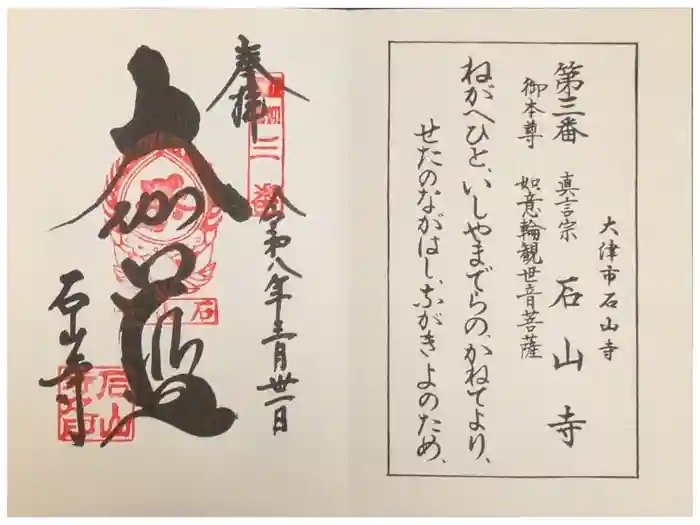 大津市石山寺
第三番 真言宗 石山寺
御本尊 如意輪観世音菩薩
ねがへひと、いしやまでらの、かねてより、
せたのながはし、ながきよのため、
奉拝
三番
令和八年三月丗一日
大伽藍
石山寺
石山